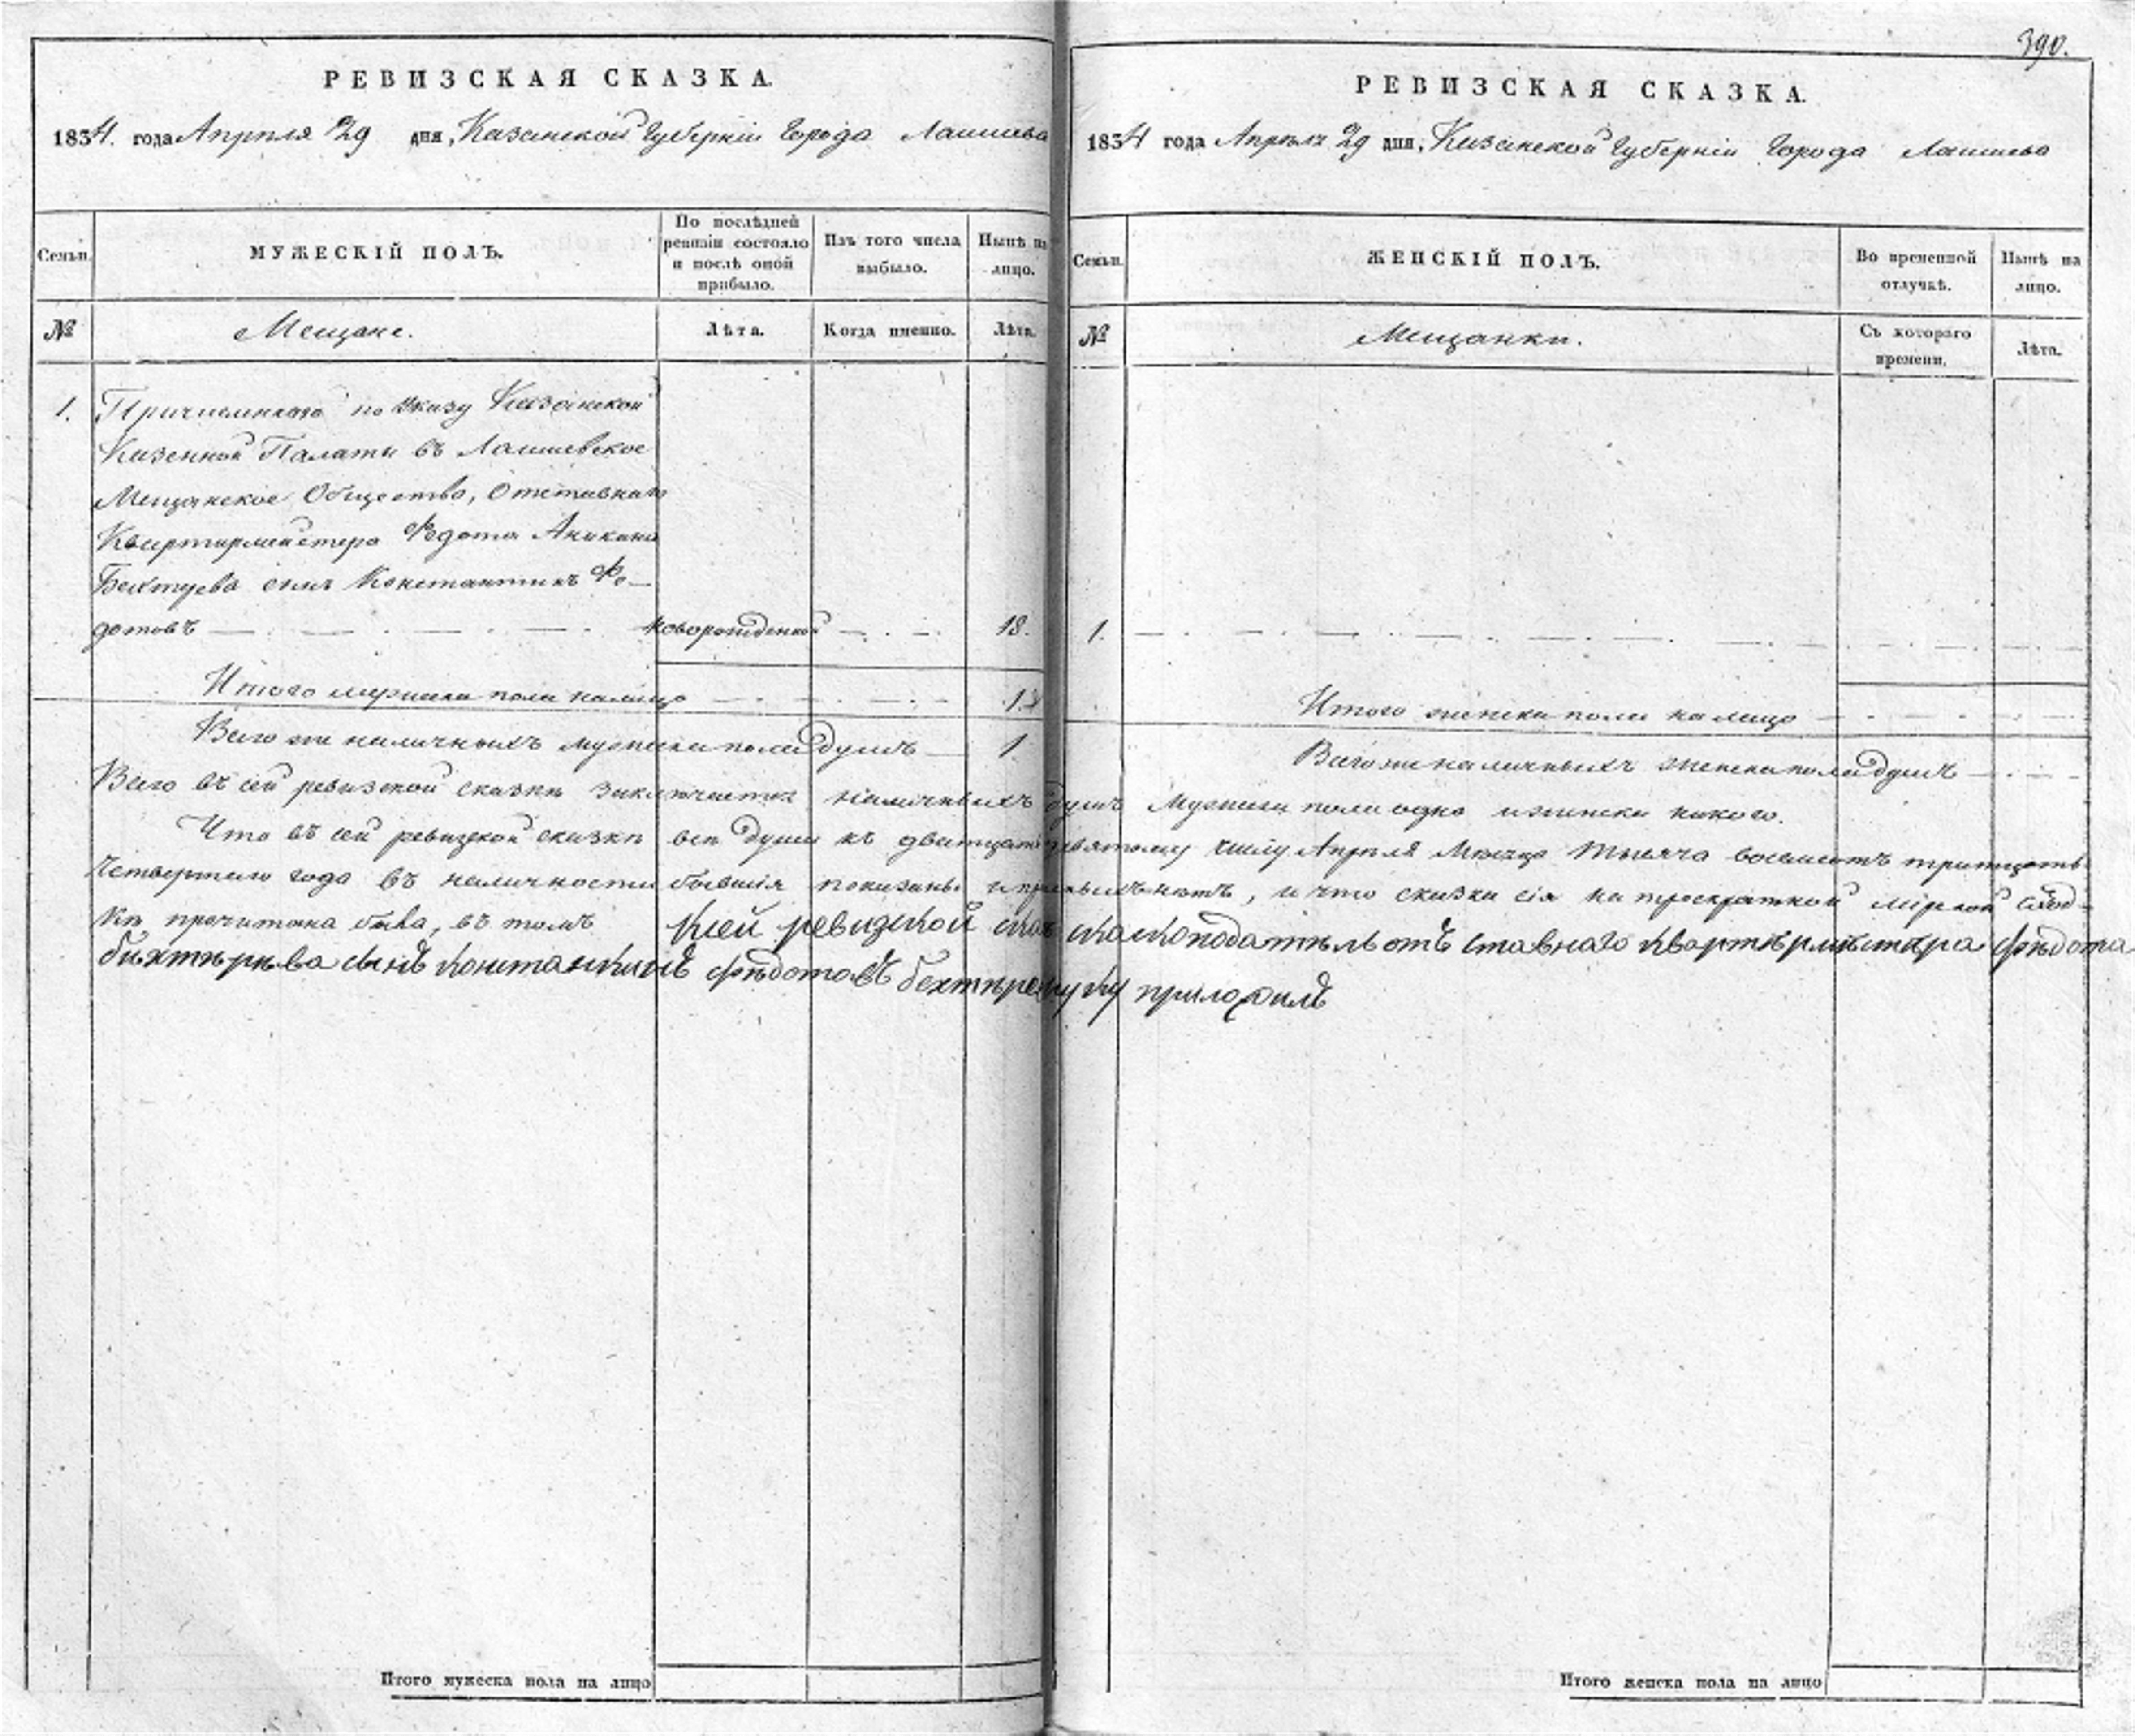 390.
РЕВИЗСКАЯ СКАЗКА.
1834. года Апрѣля 29 дня, Казанской Губерніи Города Лаишева
Семьи.
МУЖЕСКІЙ ПОЛЪ.
По послѣдней ревизіи состояло и послѣ оной прибыло.
Изъ того числа выбыло.
Нынѣ на лицо.
№
Мещане.
Лѣта.
Когда именно.
Лѣта.
1. Причисленнаго по Указу Казанской
Казенной Палаты въ Лаишевское
Мещанское Общество, Отставнаго
Квартирмейстера Федота Аникина
сынъ Константинъ Фе-
дотовъ новорожденной 18.
Итого мужеска пола налицо 18
Всего же наличныхъ мужеска пола душъ 1
РЕВИЗСКАЯ СКАЗКА.
1834 года Апрѣля 29 дня, Казанской Губерніи Города Лаишева
Семьи.
ЖЕНСКІЙ ПОЛЪ.
Во временной отлучкѣ.
Нынѣ на лицо.
№
Мещанки.
Съ котораго времени.
Лѣта.
1.
Итого женска пола налицо
Всего же наличныхъ женска пола душъ
Всего въ сей ревизской сказкѣ заключается наличныхъ душъ мужеска пола одна и женска никого.
Что въ сей ревизской сказкѣ всѣ души къ двадцать девятому числу Апрѣля Мѣсяца тысяча восемьсотъ тритцать
Четвертаго года въ наличности бывшія показаны и прописныхъ нѣтъ, и что сказка сія на троекратной мірской сход-
кѣ прочитана была, въ томъ ксей ревизской сказкоподатель отъ ставнаго Федота
сынъ Федотовъ руку приложилъ
Итого мужеска пола на лицо
Итого женска пола на лицо